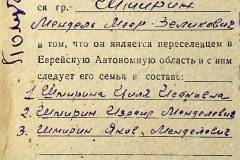 ся гр. Шмирин
Мендель Меер-Зеликович
в том, что он является переселенцем в
Еврейскую Автономную область и с ним
следует его семья в составе:
1 Шмирина Циля Исааковна
2. Шмирин Израил Менделевич
3. Шмирин Яков Менделович
Полу